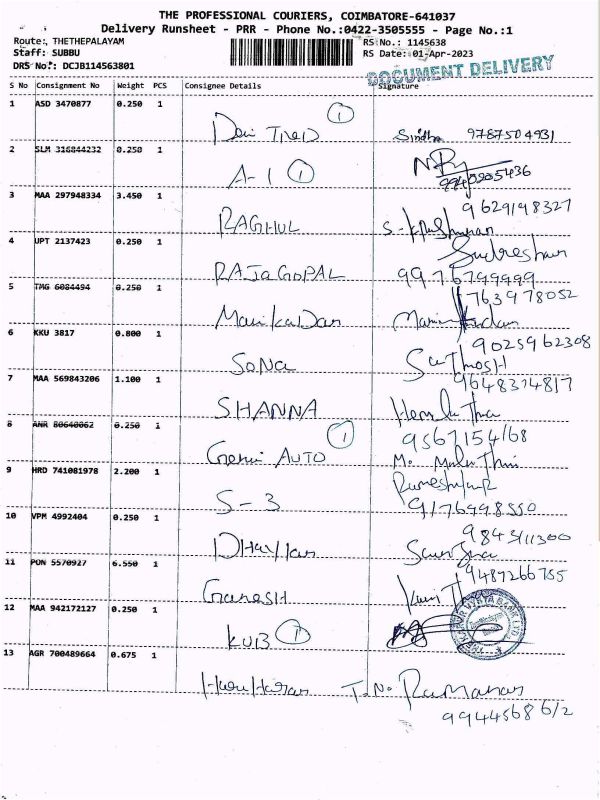 THE PROFESSIONAL COURIERS, COIMBATORE-641037
Delivery Runsheet - PRR - Phone No.:0422-3505555 - Page No.:1
Route: THETHEPALAYAM RS No.: 1145638
Staff: SUBBU RS Date: 01-Apr-2023
DRS No: DCJB114563801
DOCUMENT DELIVERY
S No Consignment No Weight PCS Consignee Details Signature
1 ASD 3470877 0.250 1
1
Sindhu 9787504931
2 SLM 316844232 0.250 1
A-1 1
9940205436
3 MAA 297948334 3.450 1
9629198327
RAGHUL
4 UPT 2137423 0.250 1
Sudreshan
RAJaGOPAL 99767 99999
5 TMG 6084494 0.250 1
763978052
ManikaDan
6 KKU 3817 0.800 1
9025962308
SoNa SaThosH
7 MAA 569843206 1.100 1
9648374817
SHANNA
8 ANR 80640062 0.250 1
1 9567154168
AUTO
9 HRD 741081978 2.200 1
S-3 9176998550
10 VPM 4992404 0.250 1
9843111300
11 PON 5570927 6.550 1
9487266755
GaneSH
12 MAA 942172127 0.250 1
KUB 1
13 AGR 700489664 0.675 1
HariHaran T.No RaManan
9944568612